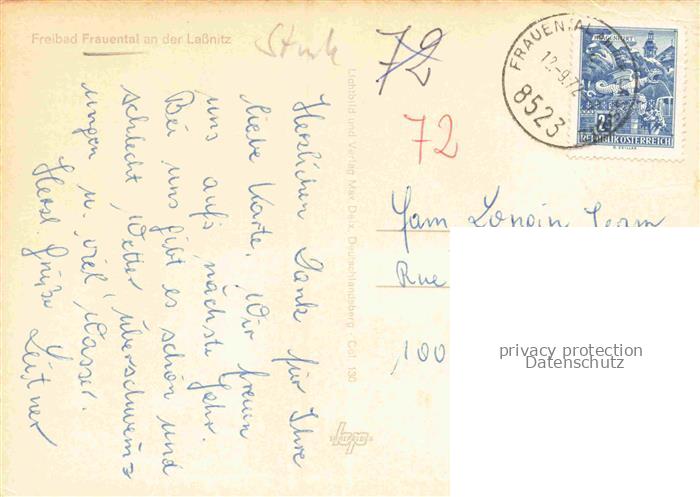 Freibad Frauental an der Laßnitz
72
72
FRAUENTAL
12.-9.72
8523
REPUBLIK ÖSTERREICH
Herzlichen Dank für Ihre
liebe Karte. Wir freuen
uns auf's nächste Jahr.
Bei uns gibt es schön und
schlecht Wetter, überschwem=
ungen u. viel Wasser.
Herzl. Grüße Leitner
Lichtbild und Verlag Max Daix, Deutschlandsberg
130
Fam.
Rue
100
privacy protection
Datenschutz